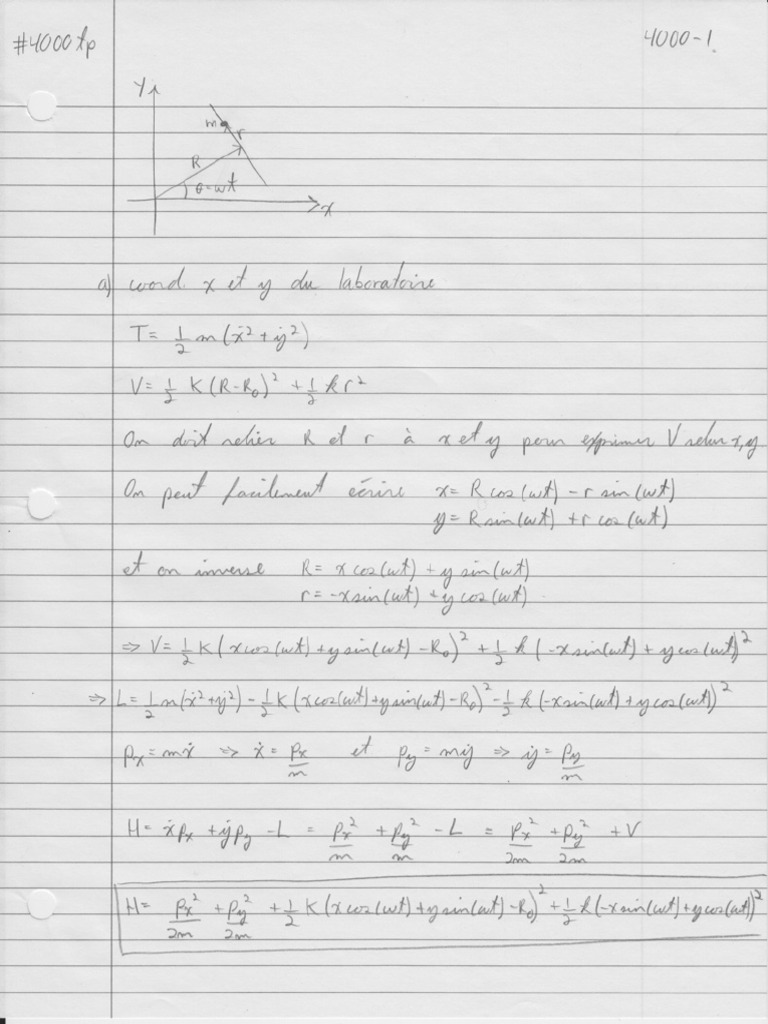 #4000 tp
4000-1.
y
m
r
R
θ=ωt
x
a) coord. x et y du laboratoire
T= 1/2 m(ẋ²+ẏ²)
V= 1/2 K(R-R₀)² + 1/2 k r²
On doit relier R et r à x et y pour exprimer V selon x,y
On peut facilement écrire x= R cos(ωt) - r sin(ωt)
y= R sin(ωt) + r cos(ωt)
et on inverse R= x cos(ωt) + y sin(ωt)
r= -x sin(ωt) + y cos(ωt)
⇒ V= 1/2 K(x cos(ωt) + y sin(ωt) - R₀)² + 1/2 k(-x sin(ωt) + y cos(ωt))²
⇒ L= 1/2 m(ẋ²+ẏ²) - 1/2 K(x cos(ωt)+y sin(ωt)-R₀)² - 1/2 k(-x sin(ωt)+y cos(ωt))²
pₓ= mẋ ⇒ ẋ= pₓ/m et p_y= mẏ ⇒ ẏ= p_y/m
H= ẋpₓ + ẏp_y - L = pₓ²/m + p_y²/m - L = pₓ²/2m + p_y²/2m + V
H= pₓ²/2m + p_y²/2m + 1/2 K(x cos(ωt)+y sin(ωt)-R₀)² + 1/2 k(-x sin(ωt)+y cos(ωt))²